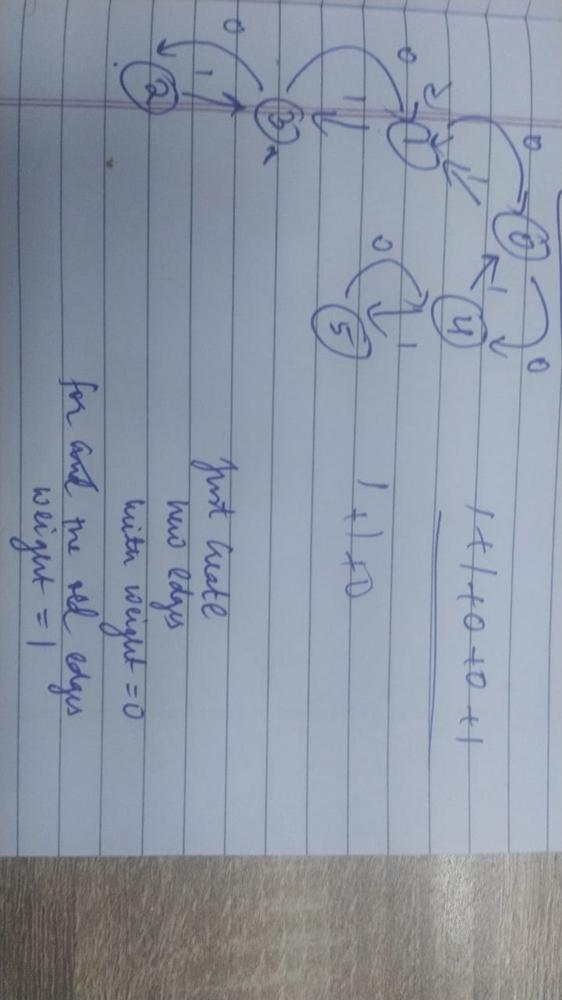 0
0
0
1
6
1
1
1
1
4
0
3
0
1
2
0
5
1
1+1+0+0+1
1+1+0
Just create
new edges
with weight = 0
for and the old edges
weight = 1